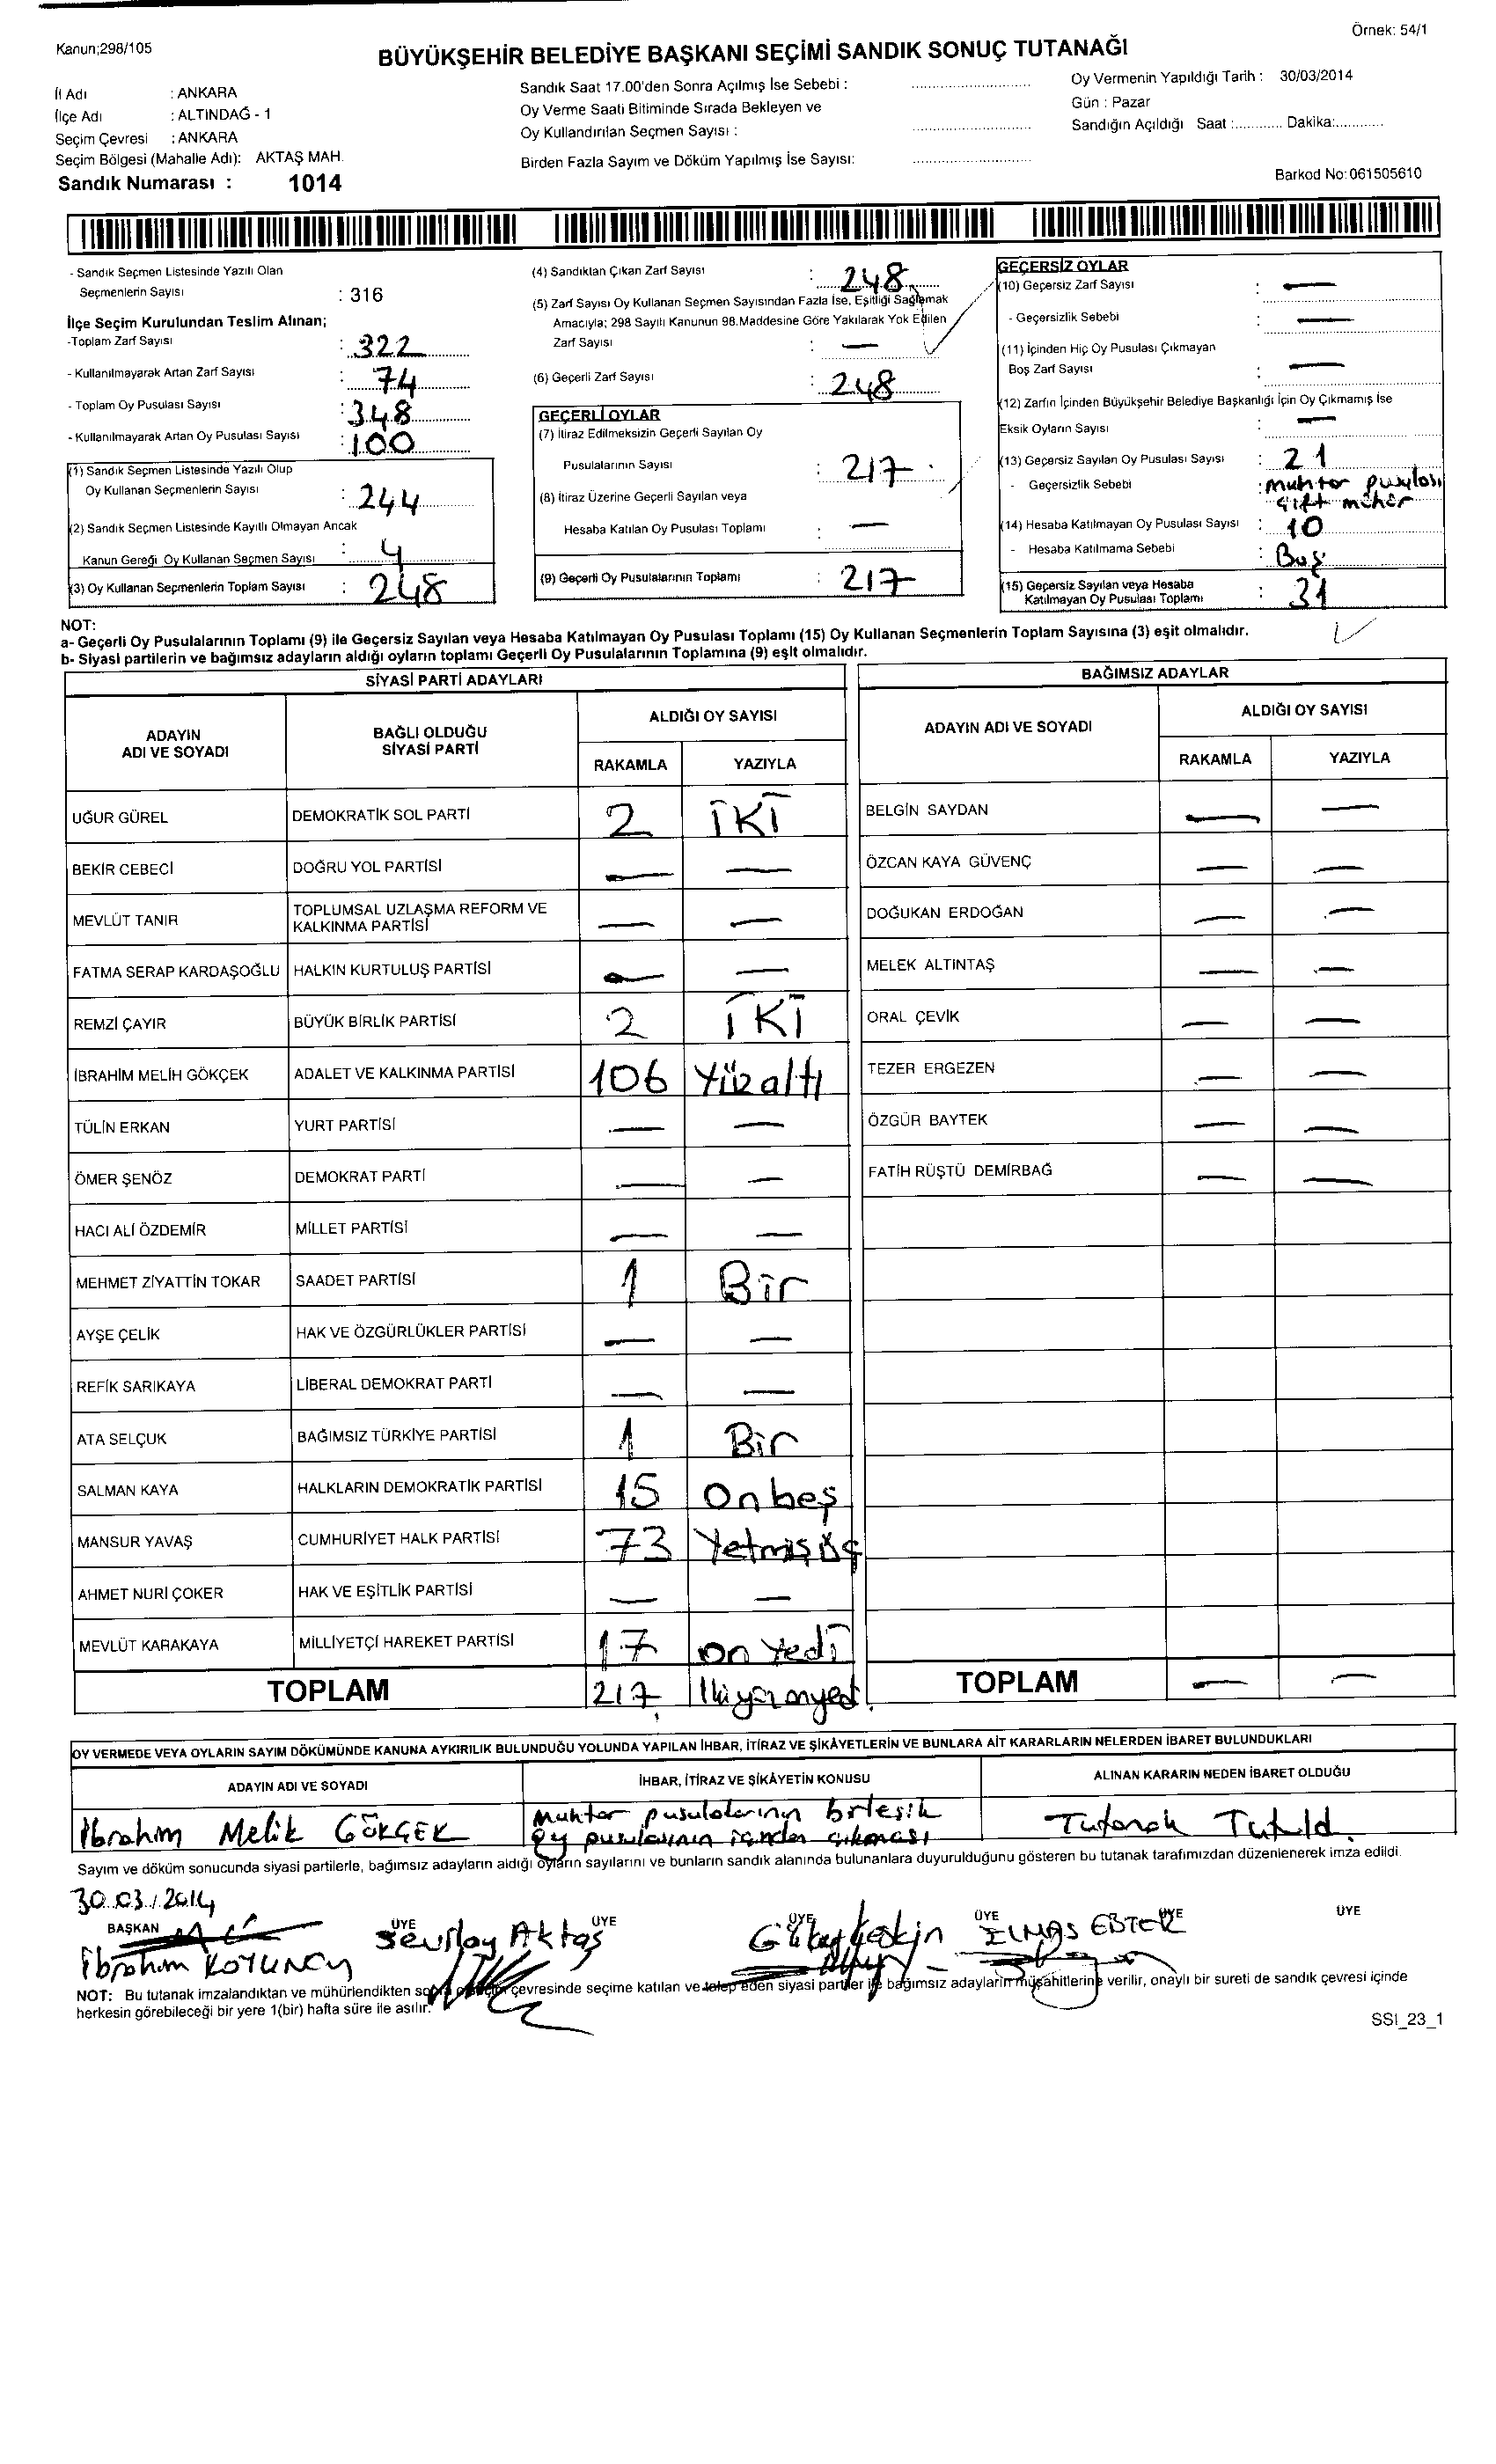 Örnek: 54/1
Kanun;298/105
BÜYÜKŞEHİR BELEDİYE BAŞKANI SEÇİMİ SANDIK SONUÇ TUTANAĞI
İl Adı : ANKARA
İlçe Adı : ALTINDAĞ - 1
Seçim Çevresi : ANKARA
Seçim Bölgesi (Mahalle Adı): AKTAŞ MAH.
Sandık Numarası : 1014
Sandık Saat 17.00'den Sonra Açılmış İse Sebebi :
Oy Verme Saati Bitiminde Sırada Bekleyen ve
Oy Kullandırılan Seçmen Sayısı :
Birden Fazla Sayım ve Döküm Yapılmış İse Sayısı:
Oy Vermenin Yapıldığı Tarih : 30/03/2014
Gün : Pazar
Sandığın Açıldığı Saat :............ Dakika:............
Barkod No:061505610
- Sandık Seçmen Listesinde Yazılı Olan
Seçmenlerin Sayısı : 316
İlçe Seçim Kurulundan Teslim Alınan;
-Toplam Zarf Sayısı : 322
- Kullanılmayarak Artan Zarf Sayısı : 74
- Toplam Oy Pusulası Sayısı : 348
- Kullanılmayarak Artan Oy Pusulası Sayısı : 100
(1) Sandık Seçmen Listesinde Yazılı Olup
Oy Kullanan Seçmenlerin Sayısı : 244
(2) Sandık Seçmen Listesinde Kayıtlı Olmayan Ancak
Kanun Gereği Oy Kullanan Seçmen Sayısı : 4
(3) Oy Kullanan Seçmenlerin Toplam Sayısı : 248
(4) Sandıktan Çıkan Zarf Sayısı : 248
(5) Zarf Sayısı Oy Kullanan Seçmen Sayısından Fazla İse, Eşitliği Sağlamak
Amacıyla; 298 Sayılı Kanunun 98.Maddesine Göre Yakılarak Yok Edilen
Zarf Sayısı : —
(6) Geçerli Zarf Sayısı : 248
GEÇERLİ OYLAR
(7) İtiraz Edilmeksizin Geçerli Sayılan Oy
Pusulalarının Sayısı : 217
(8) İtiraz Üzerine Geçerli Sayılan veya
Hesaba Katılan Oy Pusulası Toplamı : —
(9) Geçerli Oy Pusulalarının Toplamı : 217
GEÇERSİZ OYLAR
(10) Geçersiz Zarf Sayısı : —
- Geçersizlik Sebebi : —
(11) İçinden Hiç Oy Pusulası Çıkmayan
Boş Zarf Sayısı : —
(12) Zarfın İçinden Büyükşehir Belediye Başkanlığı İçin Oy Çıkmamış İse
Eksik Oyların Sayısı : —
(13) Geçersiz Sayılan Oy Pusulası Sayısı : 21
- Geçersizlik Sebebi : muhtar pusulası
çift mühür
(14) Hesaba Katılmayan Oy Pusulası Sayısı : 10
- Hesaba Katılmama Sebebi : Boş
(15) Geçersiz Sayılan veya Hesaba
Katılmayan Oy Pusulası Toplamı : 31
NOT:
a- Geçerli Oy Pusulalarının Toplamı (9) ile Geçersiz Sayılan veya Hesaba Katılmayan Oy Pusulası Toplamı (15) Oy Kullanan Seçmenlerin Toplam Sayısına (3) eşit olmalıdır.
b- Siyasi partilerin ve bağımsız adayların aldığı oyların toplamı Geçerli Oy Pusulalarının Toplamına (9) eşit olmalıdır.
SİYASİ PARTİ ADAYLARI
ADAYIN ADI VE SOYADI BAĞLI OLDUĞU SİYASİ PARTİ ALDIĞI OY SAYISI
RAKAMLA YAZIYLA
UĞUR GÜREL DEMOKRATİK SOL PARTİ 2 İKİ
BEKİR CEBECİ DOĞRU YOL PARTİSİ — —
MEVLÜT TANIR TOPLUMSAL UZLAŞMA REFORM VE KALKINMA PARTİSİ — —
FATMA SERAP KARDAŞOĞLU HALKIN KURTULUŞ PARTİSİ — —
REMZİ ÇAYIR BÜYÜK BİRLİK PARTİSİ 2 İKİ
İBRAHİM MELİH GÖKÇEK ADALET VE KALKINMA PARTİSİ 106 Yüzaltı
TÜLİN ERKAN YURT PARTİSİ — —
ÖMER ŞENÖZ DEMOKRAT PARTİ — —
HACI ALİ ÖZDEMİR MİLLET PARTİSİ — —
MEHMET ZİYATTİN TOKAR SAADET PARTİSİ 1 Bir
AYŞE ÇELİK HAK VE ÖZGÜRLÜKLER PARTİSİ — —
REFİK SARIKAYA LİBERAL DEMOKRAT PARTİ — —
ATA SELÇUK BAĞIMSIZ TÜRKİYE PARTİSİ 1 Bir
SALMAN KAYA HALKLARIN DEMOKRATİK PARTİSİ 15 Onbeş
MANSUR YAVAŞ CUMHURİYET HALK PARTİSİ 73 Yetmişüç
AHMET NURİ ÇOKER HAK VE EŞİTLİK PARTİSİ — —
MEVLÜT KARAKAYA MİLLİYETÇİ HAREKET PARTİSİ 17 on yedi
TOPLAM 217 İkiyüzonyedi
BAĞIMSIZ ADAYLAR
ADAYIN ADI VE SOYADI ALDIĞI OY SAYISI
RAKAMLA YAZIYLA
BELGİN SAYDAN — —
ÖZCAN KAYA GÜVENÇ — —
DOĞUKAN ERDOĞAN — —
MELEK ALTINTAŞ — —
ORAL ÇEVİK — —
TEZER ERGEZEN — —
ÖZGÜR BAYTEK — —
FATİH RÜŞTÜ DEMİRBAĞ — —
TOPLAM — —
OY VERMEDE VEYA OYLARIN SAYIM DÖKÜMÜNDE KANUNA AYKIRILIK BULUNDUĞU YOLUNDA YAPILAN İHBAR, İTİRAZ VE ŞİKÂYETLERİN VE BUNLARA AİT KARARLARIN NELERDEN İBARET BULUNDUKLARI
ADAYIN ADI VE SOYADI İHBAR, İTİRAZ VE ŞİKÂYETİN KONUSU ALINAN KARARIN NEDEN İBARET OLDUĞU
İbrahim Melik GÖKÇEK Muhtar pusulalarının birleşik Tutanak Tutuld.
oy pusulasının içinden çıkması
Sayım ve döküm sonucunda siyasi partilerle, bağımsız adayların aldığı oyların sayılarını ve bunların sandık alanında bulunanlara duyurulduğunu gösteren bu tutanak tarafımızdan düzenlenerek imza edildi.
30.03./2014
BAŞKAN ÜYE ÜYE ÜYE ÜYE ÜYE ÜYE
İbrahim KOYUNCU Sevilay Aktaş Gülay Keskin ELMAS EBTER
NOT: Bu tutanak imzalandıktan ve mühürlendikten sonra çevresinde seçime katılan ve talep eden siyasi partiler ile bağımsız adayların müşahitlerine verilir, onaylı bir sureti de sandık çevresi içinde
herkesin görebileceği bir yere 1(bir) hafta süre ile asılır.
SSI_23_1